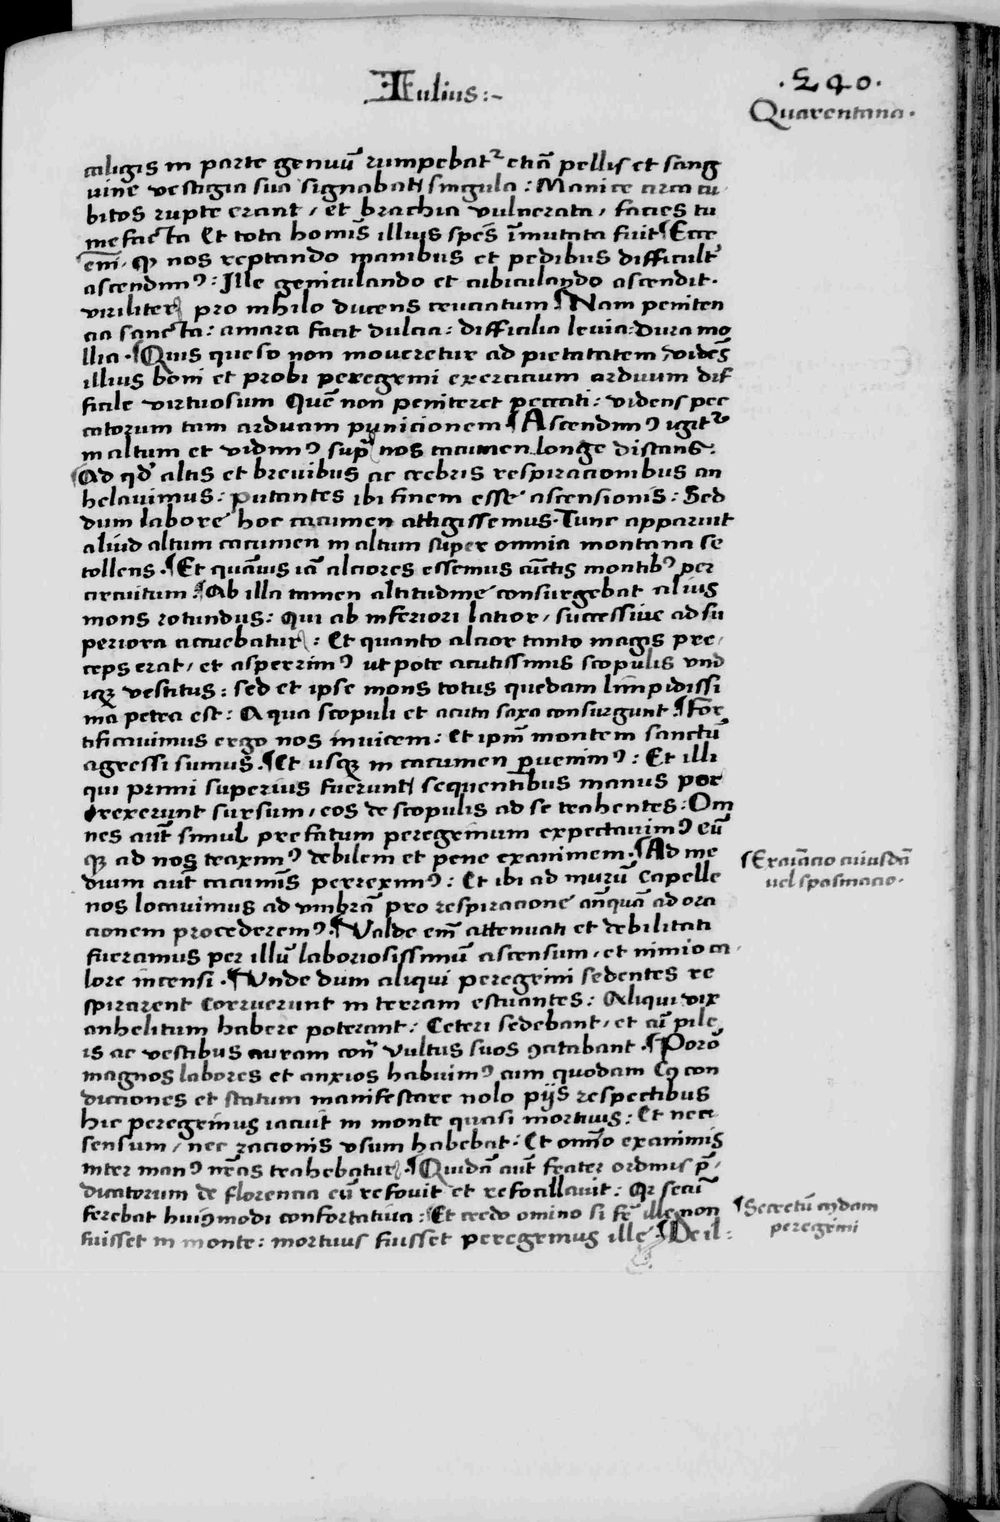 Iulius:~
.240.
Quarentana.
caligis in parte genuū rumpebat᷑ etiā pellis et sang
uine vestigia sua signabat singula: Manice circa cu
bitos rupte erant, et brachia vulnerata, facies tu
mefacta Et tota homīs illius spēs īmutata fuit ¶Ecce
enī. qɜ nos reptando manibus et pedibus difficult᷑
ascendimꝰ: Ille geniculando et cubiculando ascendit.
viriliter pro nihilo ducens cruciatum ¶Nam peniten
cia sancta: amara facit dulcia: difficilia levia: dura mo
llia. ¶Quis queso non moveretur ad pietatatem, vidēs
illius boni et probi peregrini exercicium arduum dif
ficile virtuosum Quē non peniteret peccati: videns pec
catorum tam arduam punicionem ¶Ascendimꝰ igit᷑
in altum et vidimꝰ sup̄ nos cacumen longe distans.
¶Ad qd̓ altis et brevibus ac crebris respiracionibus an
helavimus: putantes ibi finem esse ascensionis: Sed
dum labore hoc cacumen attigissemus. Tunc apparuit
aliud altum cacumen in altum super omnia montana se
tollens. ¶Et quāvis iā alciores essemus cūctis montibꝰ per
circuitum. ¶Ab illa tamen altitudine consurgebat alius
mons rotundus: qui ab inferiori latior, successive ad su
periora accuebatur: Et quanto alcior tanto magis pre,
ceps erat, et asperrimꝰ ut pote acutissimis scopulis vnd
iqɜ vestitus: sed et ipse mons totus quedam limpidissi
ma petra est: A qua scopuli et acuta saxa consurgunt. ¶For
tificavimus ergo nos invicem: Et ipm̄ montem sanctū
agressi sumus. ¶Et usqɜ in cacumen ꝑvenimꝰ: Et illi
qui primi superius fuerunt sequentibus manus por
rexerunt sursum, eos de scopulis ad se trahentes: Om
nes aut̄ simul prefatum peregrinum expectavimꝰ eū
qɜ ad nos traximꝰ debilem et pene exanimem. ¶Ad me
dium aut̄ cacumīs perreximꝰ: Et ibi ad murū Capelle
nos locavimus ad vmbrā pro respiracione añquā ad ora
cionem procederemꝰ. ¶Valde enī attenuati et debilitati
fueramus per illū laboriosissimū ascensum, et nimio ca
lore incensi. ¶Vnde dum aliqui peregrini sedentes re
spirarent Corruerunt in terram estuantes: Aliqui vix
anhelitum habere poterant: Ceteri sedebant, et cū pile
is ac vestibus auram con̄ vultus suos ꝯcitabant. ¶Porō
magnos labores et anxios habuimꝰ cum quodam Cꝯ con
diciones et statum manifestare nolo pijs respectibus
hic peregrinus iacuit in monte quasi mortuus: Et nec
sensum, nec racionis vsum habebat: Et omīo exanimis
inter manꝰ nr̄as trahebatur. ¶Quidā aut̄ frater ordinis p̄,
dicatorum de florencia eū refovit et refocillavit: Qr secū
ferebat huiꝯmodi confortativa: Et credo omino si fr̄ ille non
fuisset in monte: mortuus fuisset peregrinus ille. ¶De il:
¶Exaīacio cuiusdā
vel spasmacio.
¶Secretū cuiꝰdam
peregrini